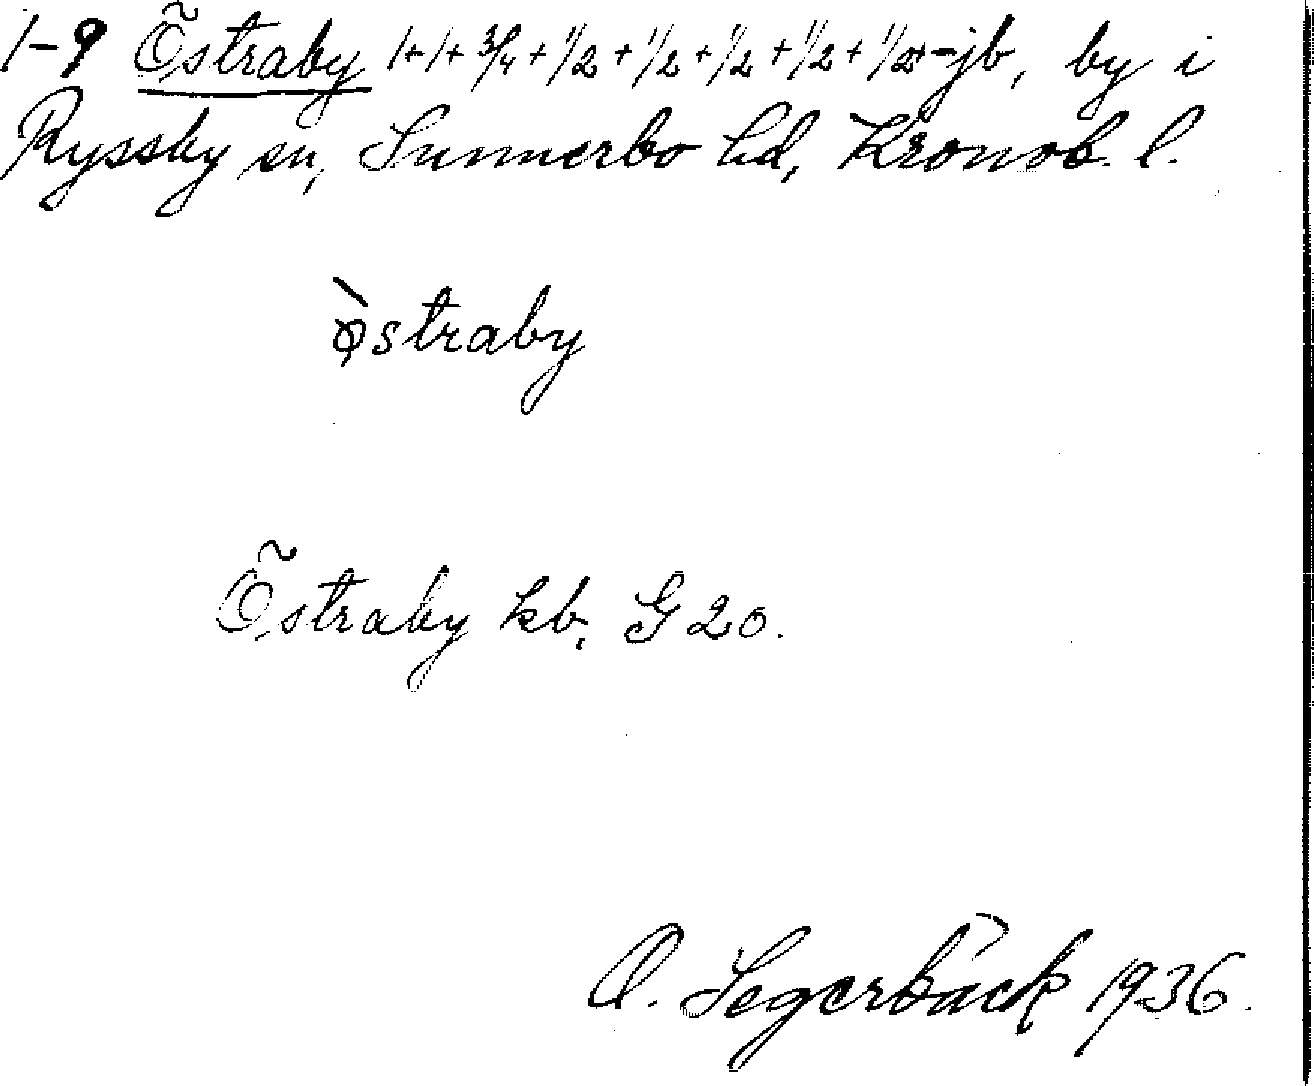 1-9 Östraby 1+1+3/4+1/2+1/2+1/2+1/2+1/2+-jb, by i
Ryssby sn, Sunnerbo hd, Kronob. l.
östraby
Östraby kb, G 20.
O. Segerbäck 1936.